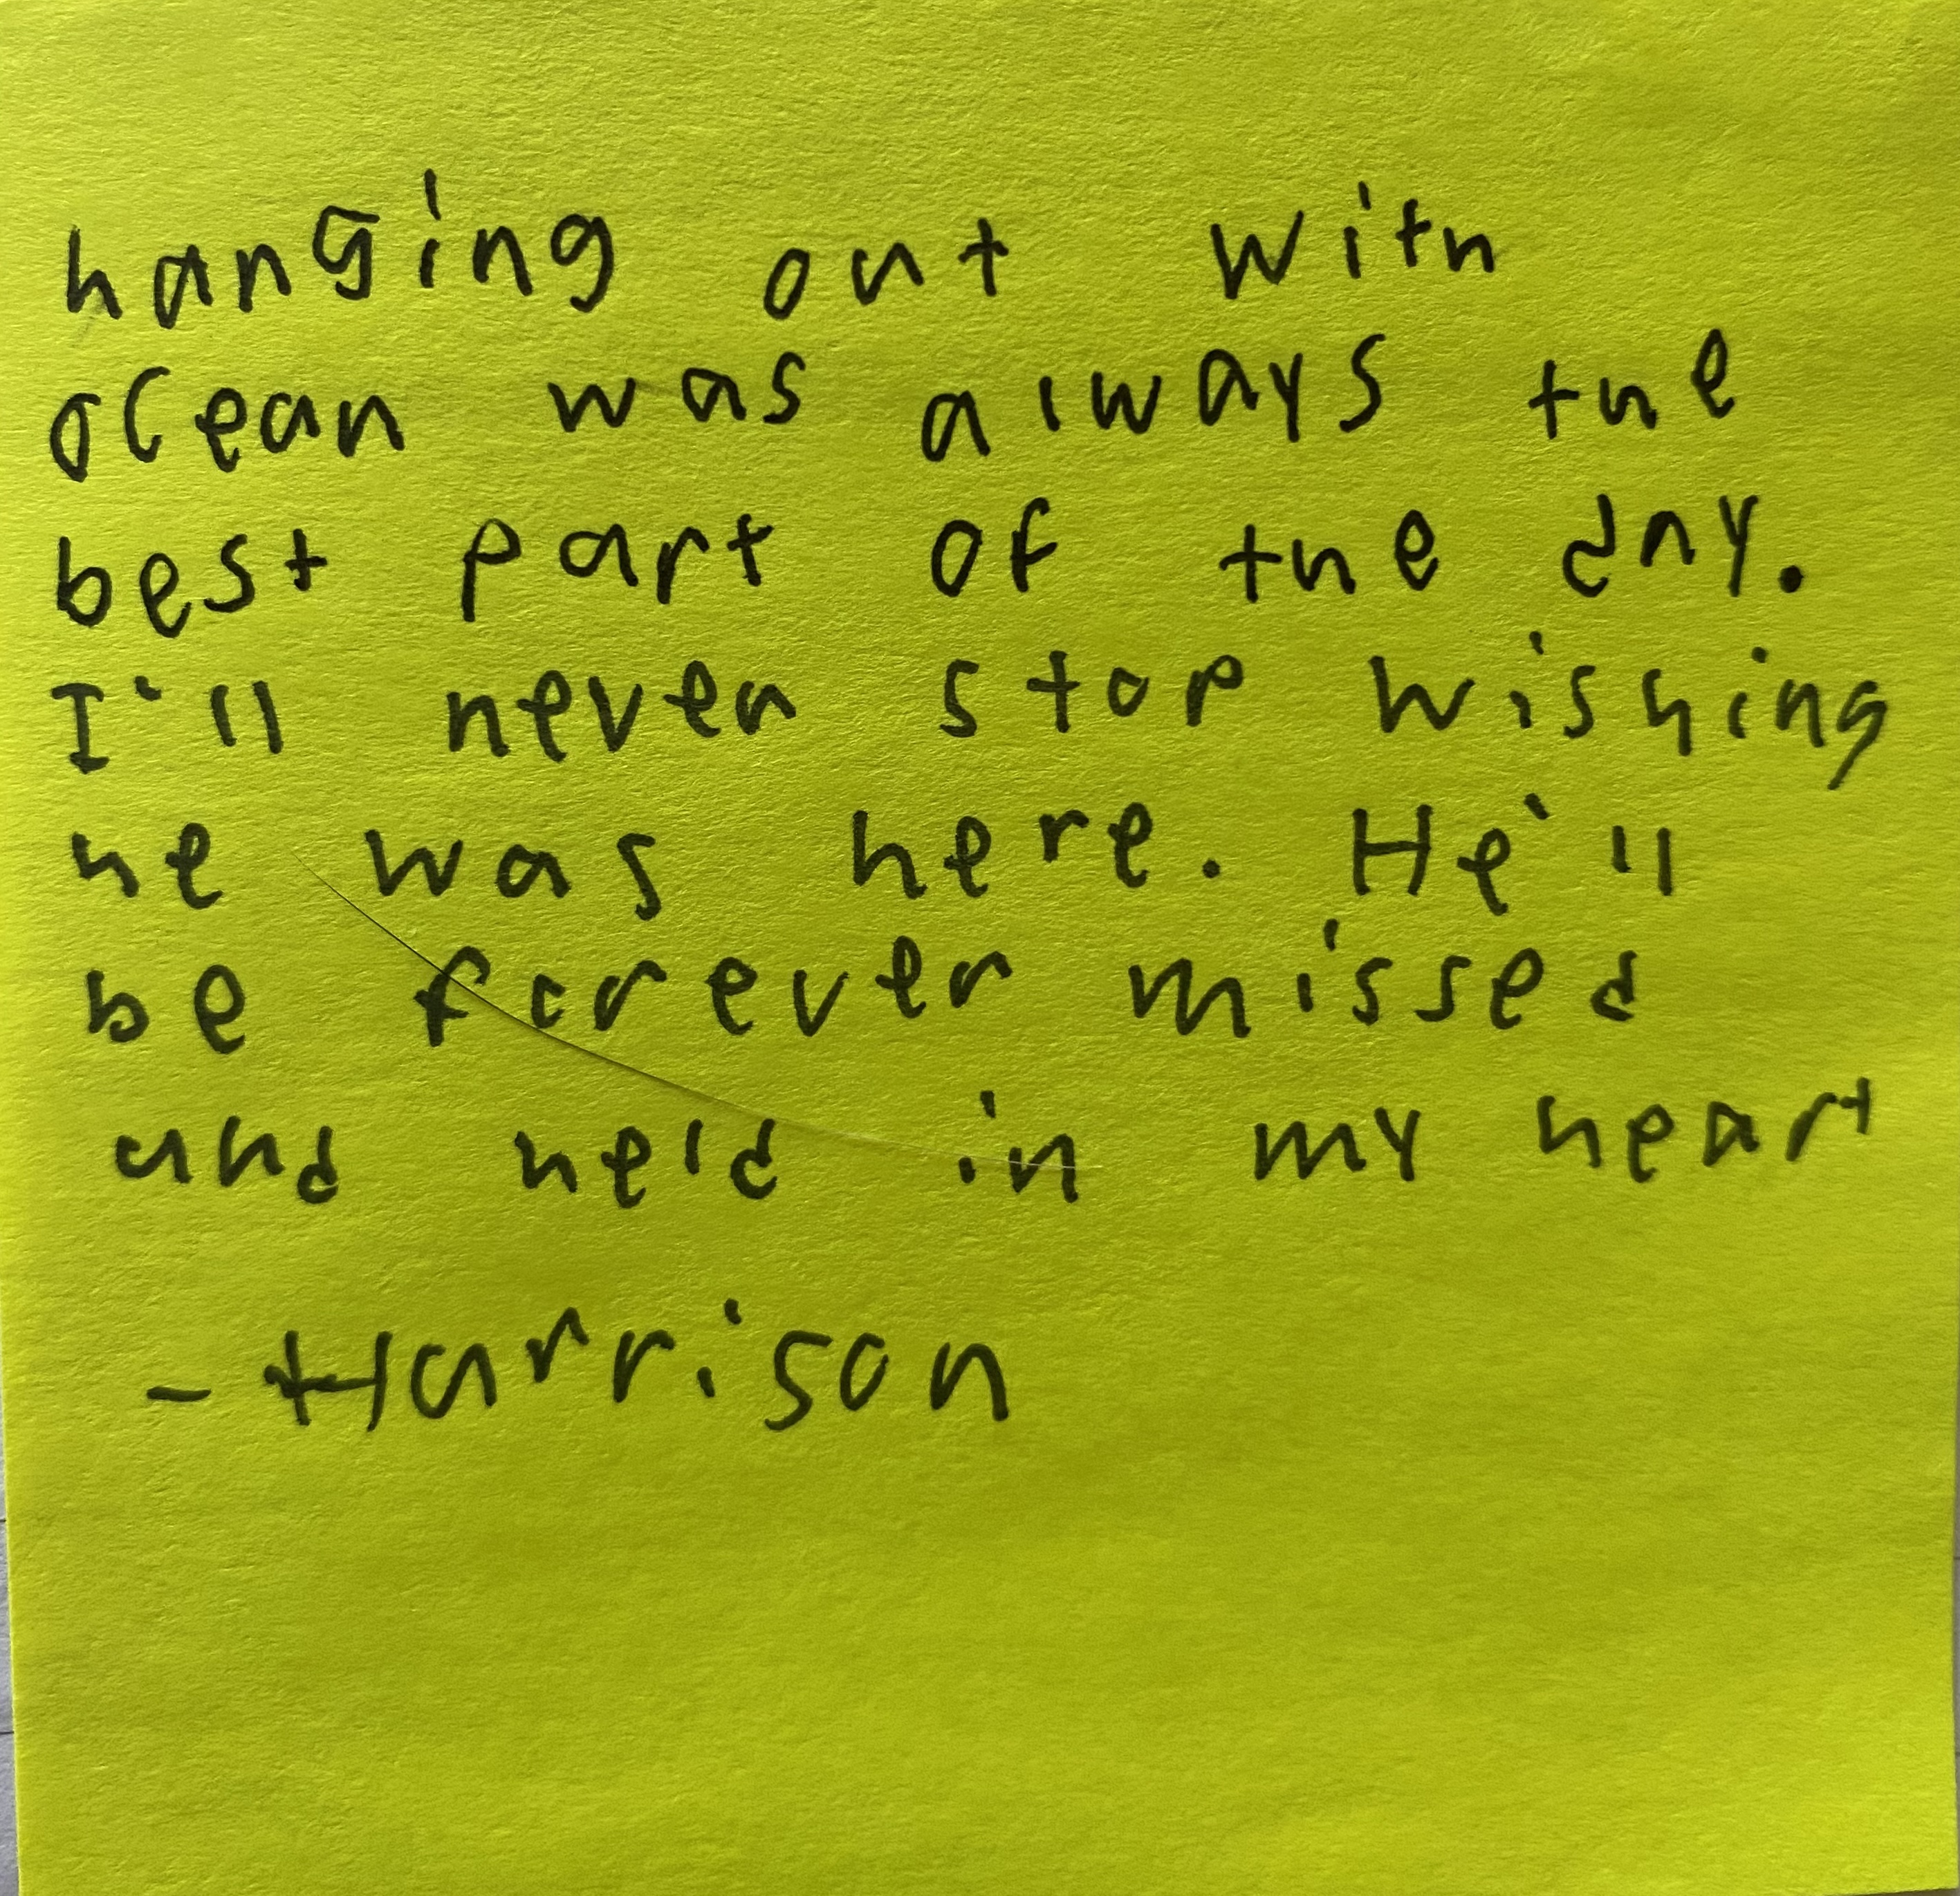 hanging out with
ocean was always the
best part of the day.
I'll never stop wishing
he was here. He'll
be forever missed
and held in my heart
- Harrison